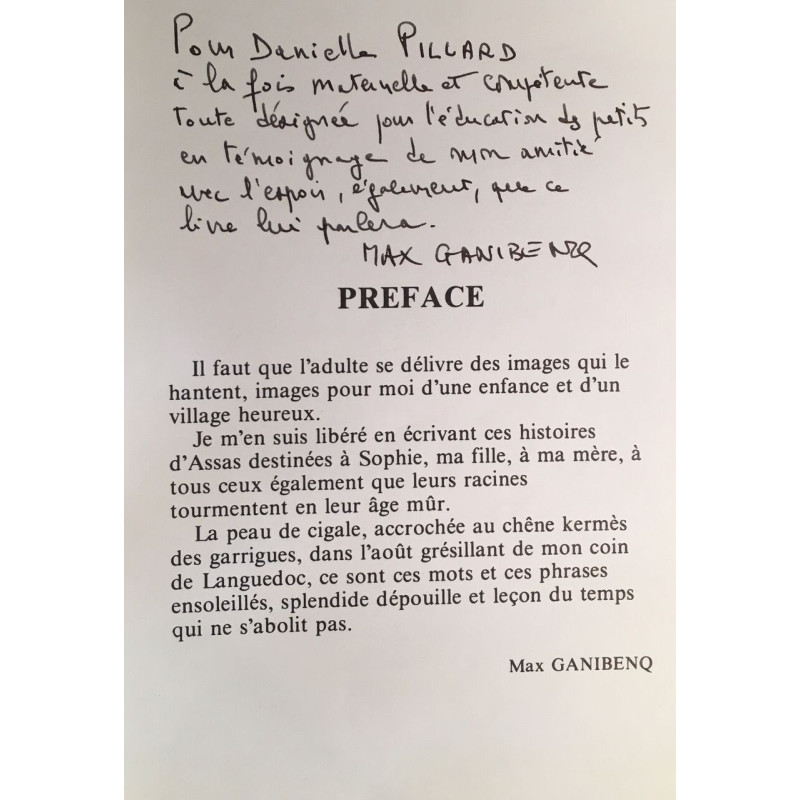 Pour Danielle PILLARD
à la fois maternelle et compétente
toute désignée pour l'éducation des petits
en témoignage de mon amitié
avec l'espoir, également, que ce
livre lui parlera.
MAX GANIBENQ
PREFACE
Il faut que l'adulte se délivre des images qui le
hantent, images pour moi d'une enfance et d'un
village heureux.
Je m'en suis libéré en écrivant ces histoires
d'Assas destinées à Sophie, ma fille, à ma mère, à
tous ceux également que leurs racines
tourmentent en leur âge mûr.
La peau de cigale, accrochée au chêne kermès
des garrigues, dans l'août grésillant de mon coin
de Languedoc, ce sont ces mots et ces phrases
ensoleillés, splendide dépouille et leçon du temps
qui ne s'abolit pas.
Max GANIBENQ